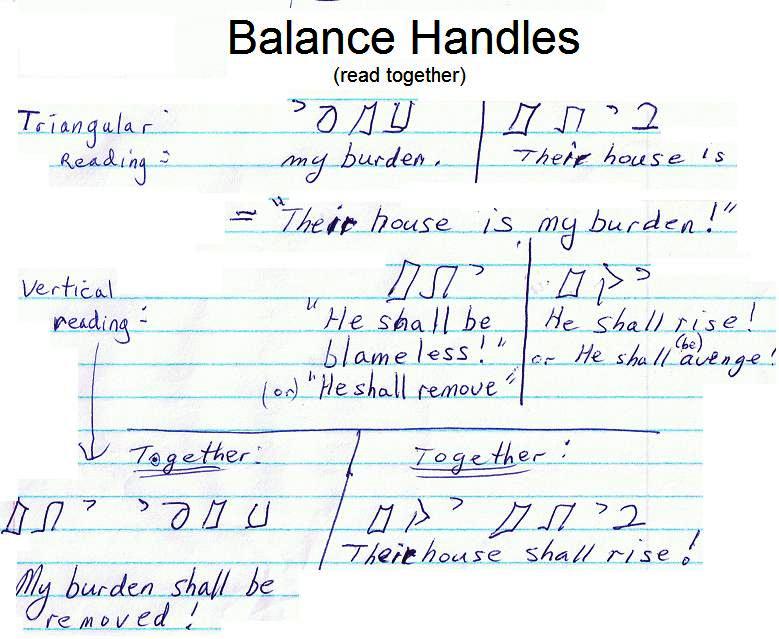 Balance Handles
(read together)
Triangular ביתם
Reading = my burden. Their house is
= "Their house is my burden!"
Vertical יתם יקם
reading = "He shall be He shall rise!
blameless!" or He shall (be) avenge!
(or) "He shall remove"
Together: Together:
יתם ביתם יקם
Their house shall rise!
My burden shall be
removed!